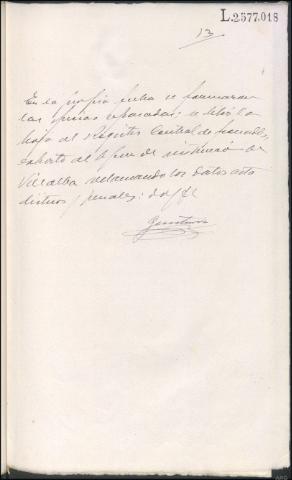 L.2.577.018
13
En la propia fecha se formaron
las piezas separadas, se libró la
hoja al Registro Central de Penados,
exhorto al Juez de instrucción de
Villalba reclamando los datos esta
dísticos y penales: doy fé